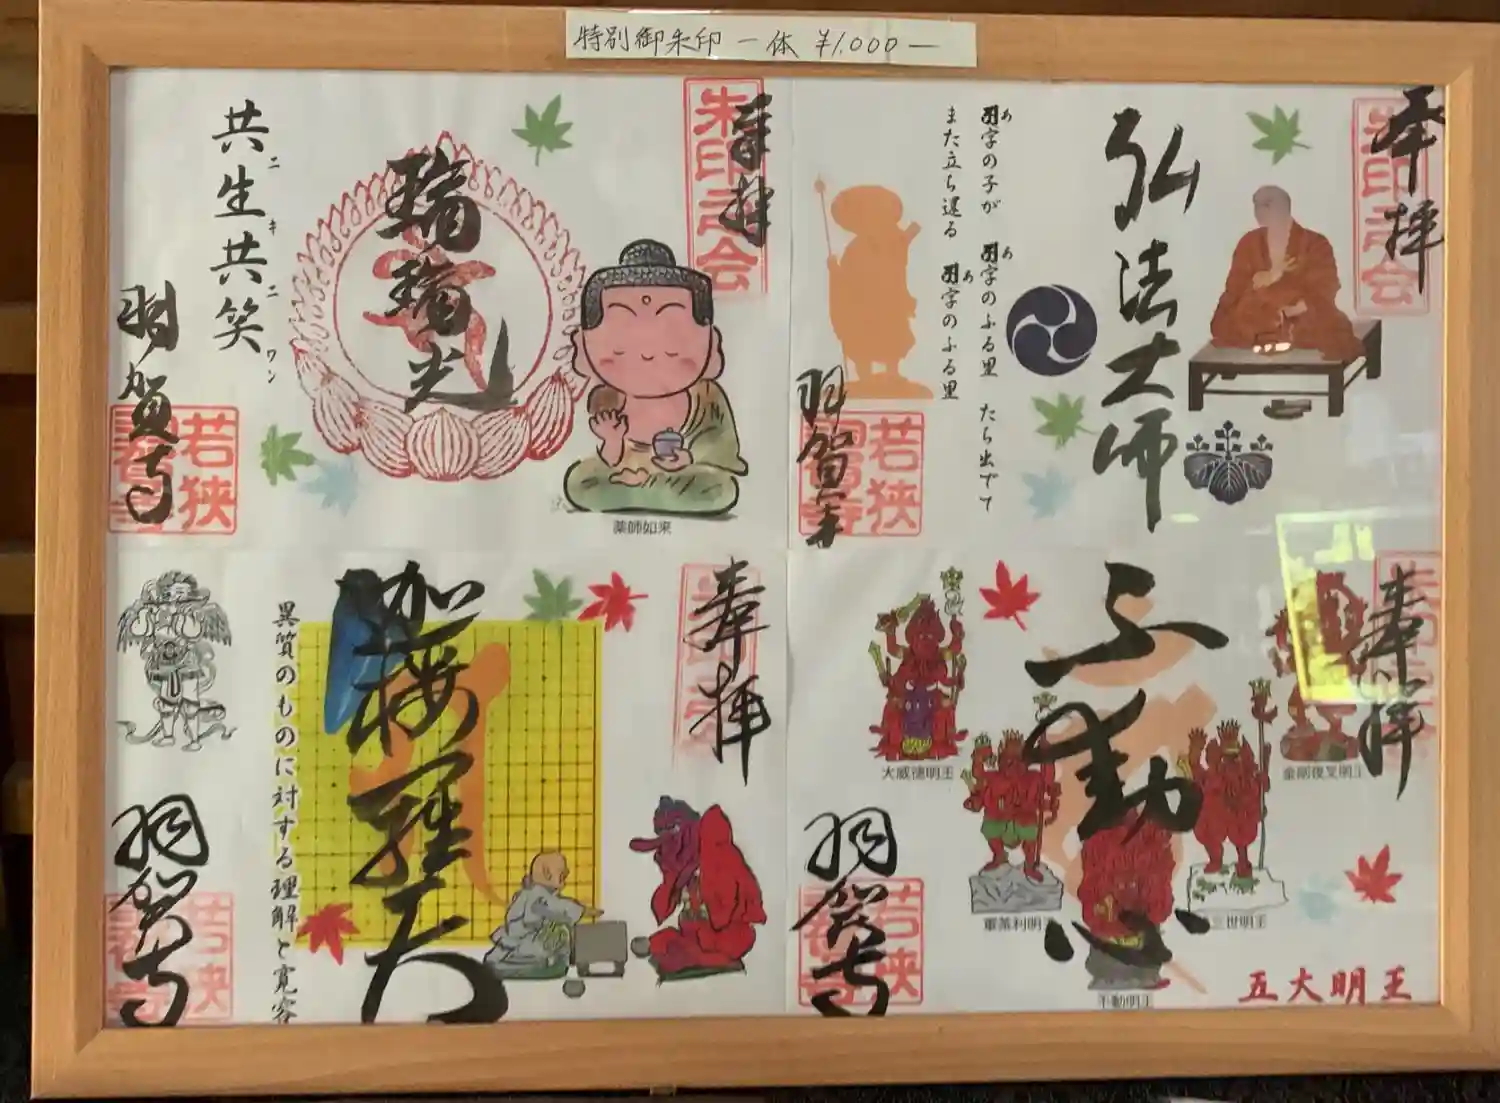 特別御朱印 一体 ¥1,000—
奉拝
朱印
会
瑠璃光
共生共笑
ニキニワン
羽賀寺
若狭
薬師如来
奉拝
弘法大師
羽字の子が 羽字のふる里 たち出でて
ああ
また立ち還る 羽字のふる里
あ
羽賀寺
若狭
奉拝
伽楼羅天
異質のものに対する理解と寛容
羽賀寺
若狭
奉拝
不動心
大威徳明王
軍荼利明
三世明王
金剛夜叉明王
不動明王
五大明王
羽賀寺
若狭